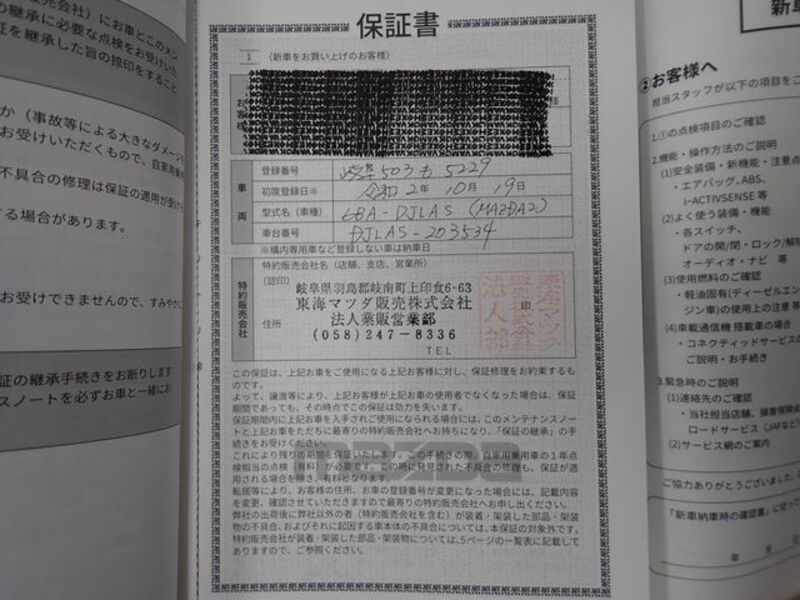 売会社）にお車とこのメン
の継承に必要な点検をお受けいた
証を継承した旨の捺印をすること
か（事故等による大きなダメージ
お受けいただくもので、自家用乗
不具合の修理は保証の適用が受け
する場合があります。
お受けできませんので、すみやかに
証の継承手続きをお断りします
スノートを必ずお車と一緒にお
保証書
1 （新車をお買い上げのお客様）
お客様
車両
登録番号 岐阜503 5229
初度登録日※ 令和2年10月19日
型式名（車種） 6BA-DJLAS (MAZDA2)
車台番号 DJLAS-203534
※構内専用車など登録しない車は納車日
特約販売会社
特約販売会社名（店舗、支店、営業所）
（認印）
岐阜県羽島郡岐南町上印食6-63
東海マツダ販売株式会社
法人業販営業部
住所
(058)247-8336
TEL
印
東海マツダ
販売株式会社
法人部
この保証は、上記お車をご使用になる上記お客様に対し、保証修理をお約束するも
のです。
よって、譲渡等により、上記お客様が上記お車の使用者でなくなった場合は、保証
期間であっても、その時点でこの保証は効力を失います。
保証期間内に上記お車を入手されご使用になられる場合には、このメンテナンスノー
トと上記お車をただちに最寄りの特約販売会社へお持ちになり、「保証の継承」の手
続きをお受けください。
これにより残りの期間を保証いたします。この手続きの際、自家用乗用車の1年点
検相当の点検（有料）が必要です。この時に発見された不具合の修理も、保証が適
用される場合を除き、有料となります。
転居等により、お客様の住所、お車の登録番号が変更になった場合には、記載内容
を変更、確認させていただきますので最寄りの特約販売会社へお申し出ください。
弊社の出荷後に弊社以外の者（特約販売会社を含む）が装着・架装した部品・架装
物の不具合、およびそれに起因する車体本体の不具合については、本保証の対象外です。
特約販売会社が装着・架装した部品・架装物については、5ページの一覧表に記載して
ありますので、ご参照ください。
新車
②お客様へ
担当スタッフが以下の項目をご
1.①の点検項目のご確認
2.機能・操作方法のご説明
(1)安全装備・新機能・注意点
・エアバッグ、ABS、
i-ACTIVSENSE 等
(2)よく使う装備・機能
・各スイッチ、
ドアの開/閉・ロック/解
オーディオ・ナビ 等
(3)使用燃料のご確認
・軽油固有(ディーゼルエン
ジン車)の使用上の注意等
(4)車載通信機 搭載車の場合
・コネクティッドサービスの
ご説明・お手続き
3.緊急時のご説明
(1)連絡先のご確認
・当社担当店舗、損害保険会
ロードサービス（JAFなど）
(2)サービス網のご案内
ご協力ありがとうございました。
「新車納車時の確認書」に従って
年 月